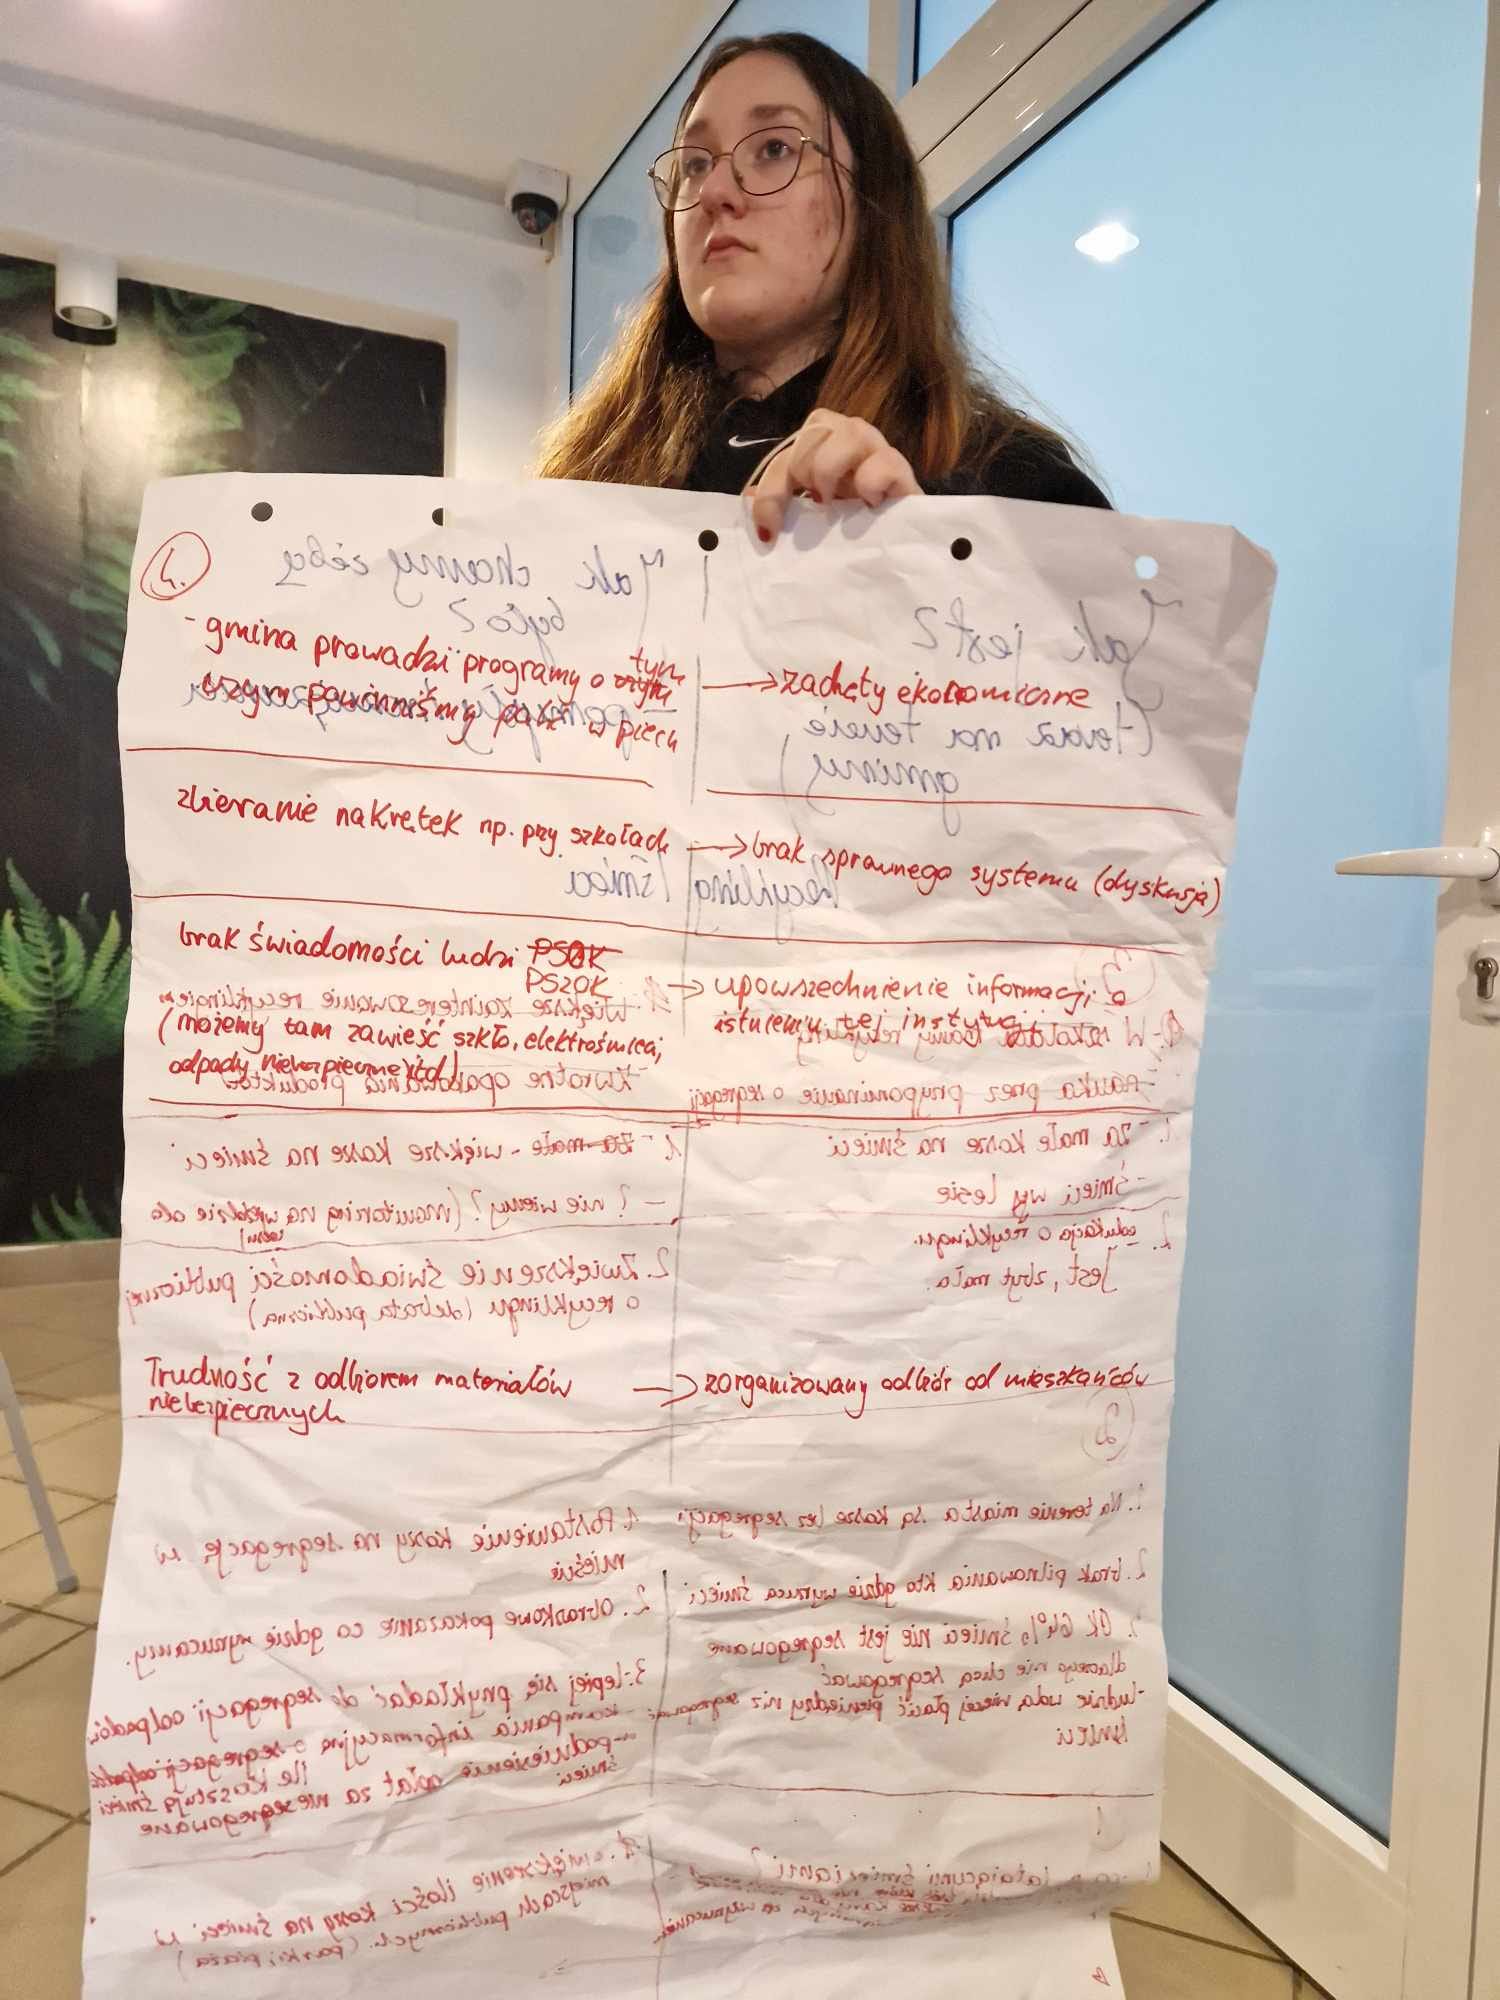 4.
- gmina prowadzi programy o czym tym
czym powinniśmy palić w piecu
→ zachęty ekonomiczne
zbieranie nakrętek np. przy szkołach
→ brak sprawnego systemu (dyskusja)
brak świadomości ludzi PSOK
PSZOK
(możemy tam zawieść szkło, elektrośmieci,
odpady niebezpieczne itd)
→ upowszechnienie informacji o
istnieniu tej instytucji
Trudność z odbiorem materiałów
niebezpiecznych
→ zorganizowany odbiór od mieszkańców
Jak jest?
(teraz na terenie
gminy)
Jak chcemy żeby
było?
Recykling / śmieci
3
W szkołach
- nauka przez przypominanie o segregacji
większe zainteresowanie recyklingiem
- zwrotne opakowania produktów
1. - za małe kosze na śmieci
- śmieci w lesie
2. edukacja o recyklingu.
jest, zbyt mała.
1. - za małe - większe kosze na śmieci
- ? nie wiemy? (monitoring na wjeździe do
lasu)
2. Zwiększenie świadomości publicznej
o recyklingu (debata publiczna)
2
1. Na terenie miasta są kosze bez segregacji
2. brak pilnowania kto gdzie wyrzuca śmieci
3. OK 64% śmieci nie jest segregowane
dlaczego nie chcą segregować
- ludzie wolą więcej płacić pieniędzy niż segregować
śmieci
1. Postawienie koszy na segregację w
mieście
2. Obrazkowe pokazanie co gdzie wyrzucamy.
3. lepiej się przykładać do segregacji odpadów.
- kampania informacyjna o segregacji odpadów
ile kosztują śmieci
- podniesienie opłat za niesegregowane
śmieci
1
latającymi śmieciami?
1. zwiększenie ilości koszy na śmieci w
miejscach publicznych. (parki, plaża)